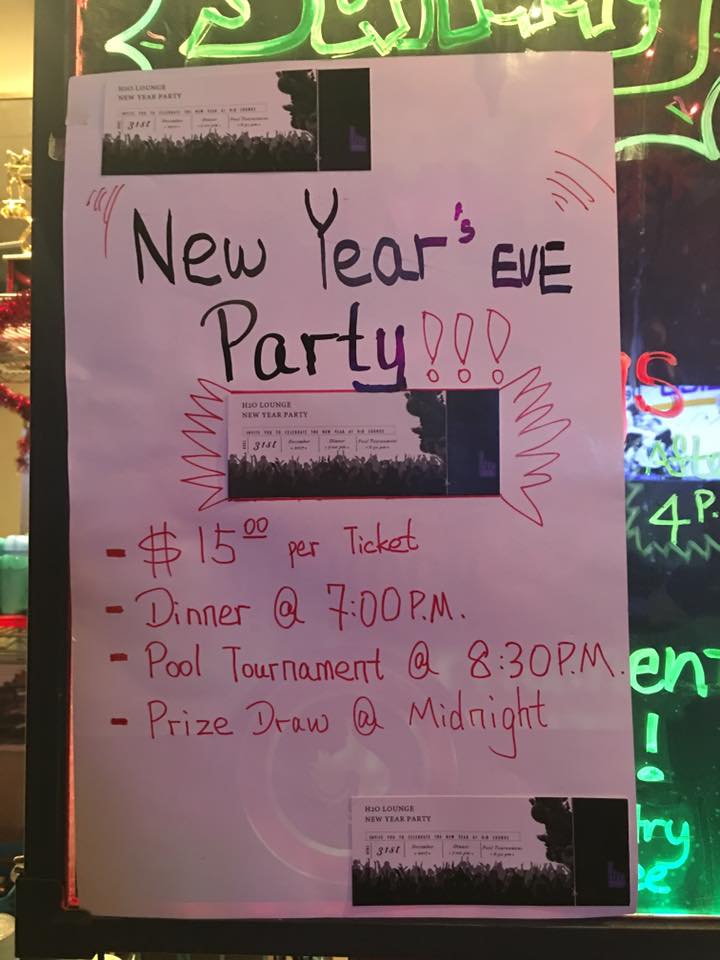 H2O LOUNGE
NEW YEAR PARTY
INVITE YOU TO CELEBRATE THE NEW YEAR AT H2O LOUNGE
31st December Dinner Pool Tournament
New Year's EVE
Party!!!
H2O LOUNGE
NEW YEAR PARTY
INVITE YOU TO CELEBRATE THE NEW YEAR AT H2O LOUNGE
31st December Dinner Pool Tournament
- $15.00 per Ticket
- Dinner @ 7:00P.M.
- Pool Tournament @ 8:30P.M.
- Prize Draw @ Midnight
H2O LOUNGE
NEW YEAR PARTY
INVITE YOU TO CELEBRATE THE NEW YEAR AT H2O LOUNGE
31st December Dinner Pool Tournament
4P.
!